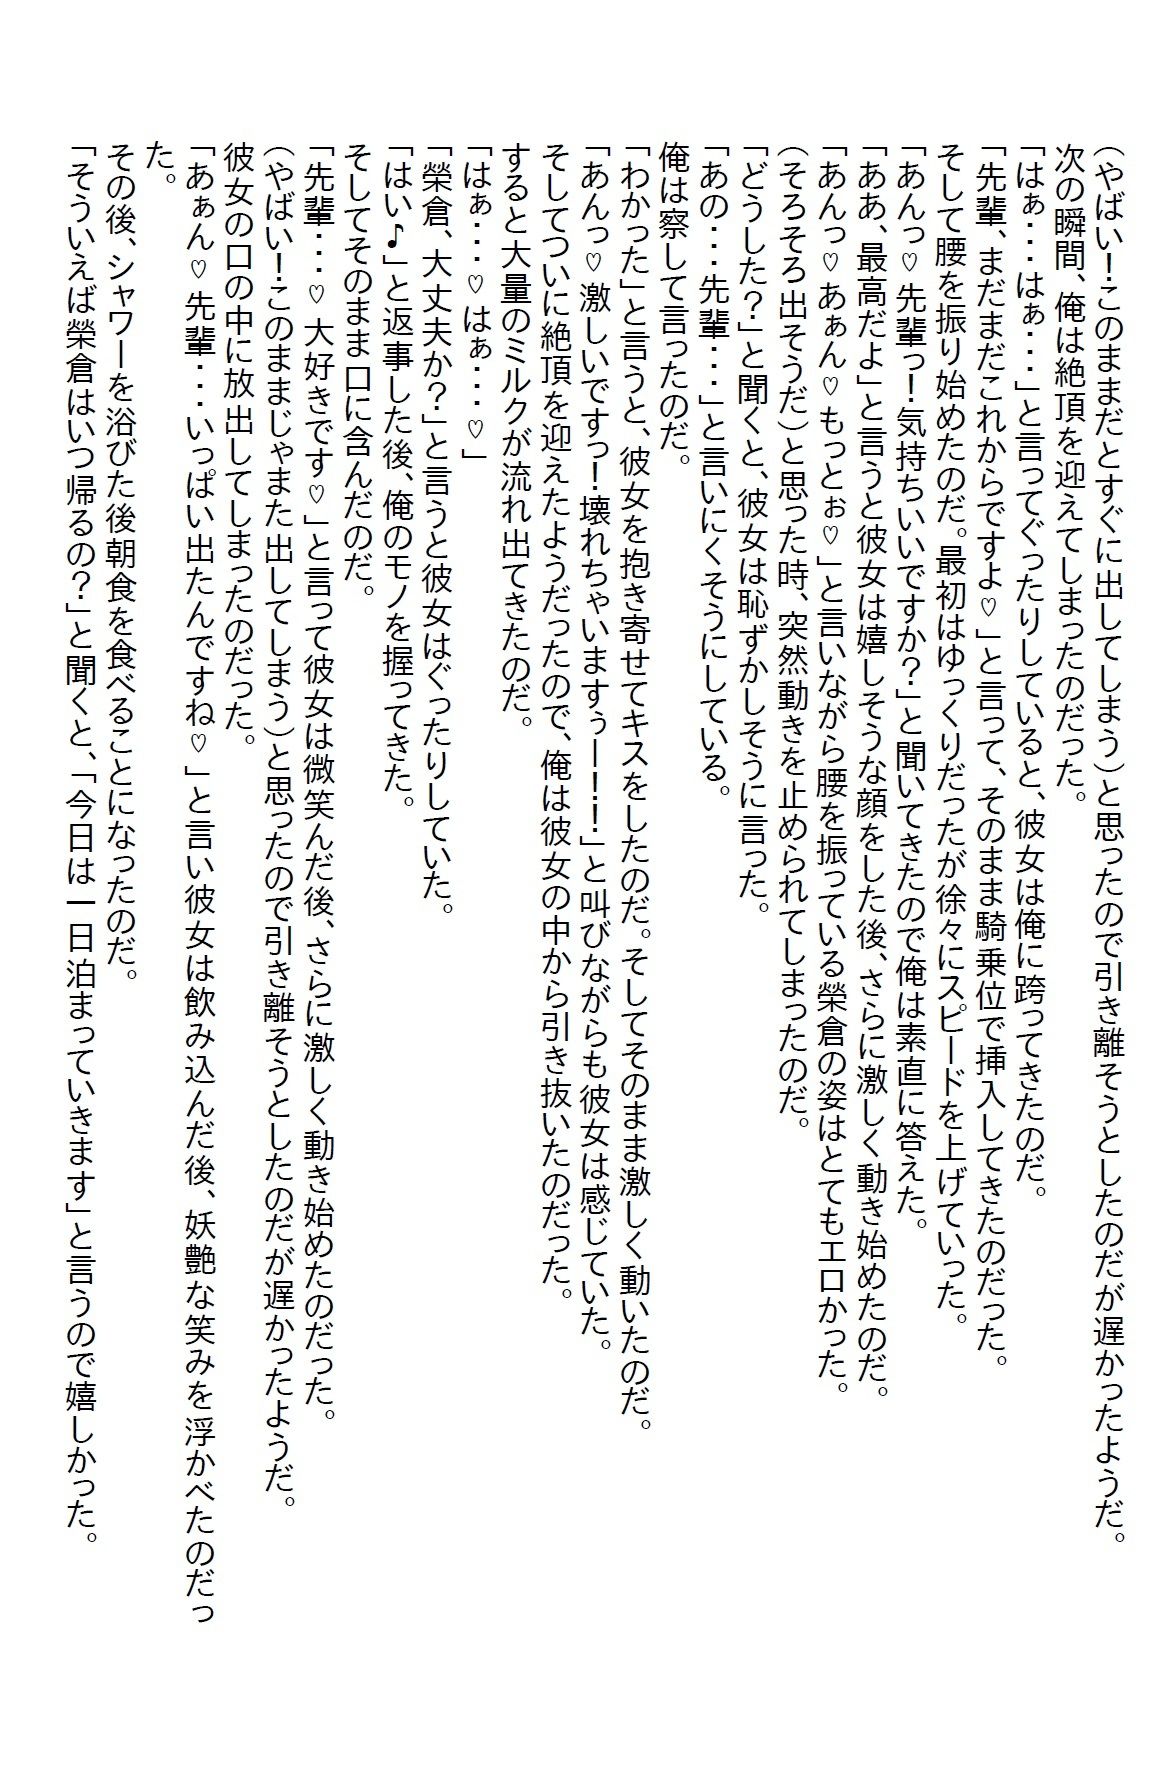 （やばい！このままだとすぐに出してしまう）と思ったので引き離そうとしたのだが遅かったようだ。
次の瞬間、俺は絶頂を迎えてしまったのだった。
「はぁ・・・はぁ・・・」と言ってぐったりしていると、彼女は俺に跨ってきたのだ。
「先輩、まだまだこれからですよ♡」と言って、そのまま騎乗位で挿入してきたのだった。
そして腰を振り始めたのだ。最初はゆっくりだったが徐々にスピードを上げていった。
「あんっ♡先輩っ！気持ちいいですか？」と聞いてきたので俺は素直に答えた。
「ああ、最高だよ」と言うと彼女は嬉しそうな顔をした後、さらに激しく動き始めたのだ。
「あんっ♡あぁん♡もっとぉ♡」と言いながら腰を振っている榮倉の姿はとてもエロかった。
（そろそろ出そうだ）と思った時、突然動きを止められてしまったのだ。
「どうした？」と聞くと、彼女は恥ずかしそうに言った。
「あの・・・先輩・・・」と言いにくそうにしている。
俺は察して言ったのだ。
「わかった」と言うと、彼女を抱き寄せてキスをしたのだ。そしてそのまま激しく動いたのだ。
「あんっ♡激しいですっ！壊れちゃいますぅー！！」と叫びながらも彼女は感じていた。
そしてついに絶頂を迎えたようだったので、俺は彼女の中から引き抜いたのだった。
すると大量のミルクが流れ出てきたのだ。
「はぁ・・・♡はぁ・・・♡」
「榮倉、大丈夫か？」と言うと彼女はぐったりしていた。
「はい♪」と返事した後、俺のモノを握ってきた。
そしてそのまま口に含んだのだ。
「先輩・・・♡大好きです♡」と言って彼女は微笑んだ後、さらに激しく動き始めたのだった。
（やばい！このままじゃまた出してしまう）と思ったので引き離そうとしたのだが遅かったようだ。
彼女の口の中に放出してしまったのだった。
「あぁん♡先輩・・・いっぱい出たんですね♡」と言い彼女は飲み込んだ後、妖艶な笑みを浮かべたのだっ
た。
その後、シャワーを浴びた後朝食を食べることになったのだ。
「そういえば榮倉はいつ帰るの？」と聞くと、「今日は一日泊まっていきます」と言うので嬉しかった。